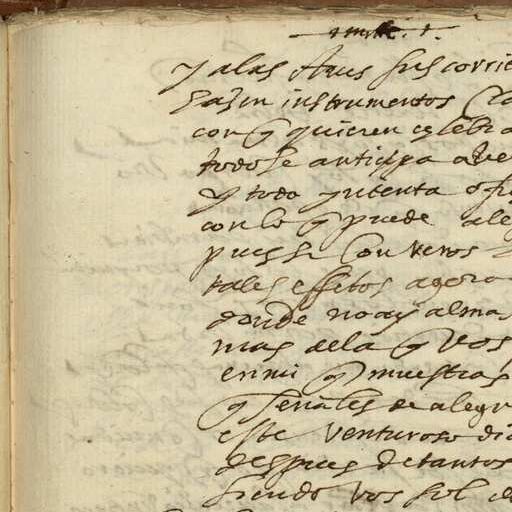 y a las Aues sus corrie
hazin instrumentos
con q quieren celebra
todo se anticipa a ve
y todo yntenta ofr
con lo q puede ale
pues si con veros
tales effetos agora
donde no ay almas
mas de la q vos
en mi q muestras
q señales de alegr
este venturoso dia
despues de tantos
siendo vos sol